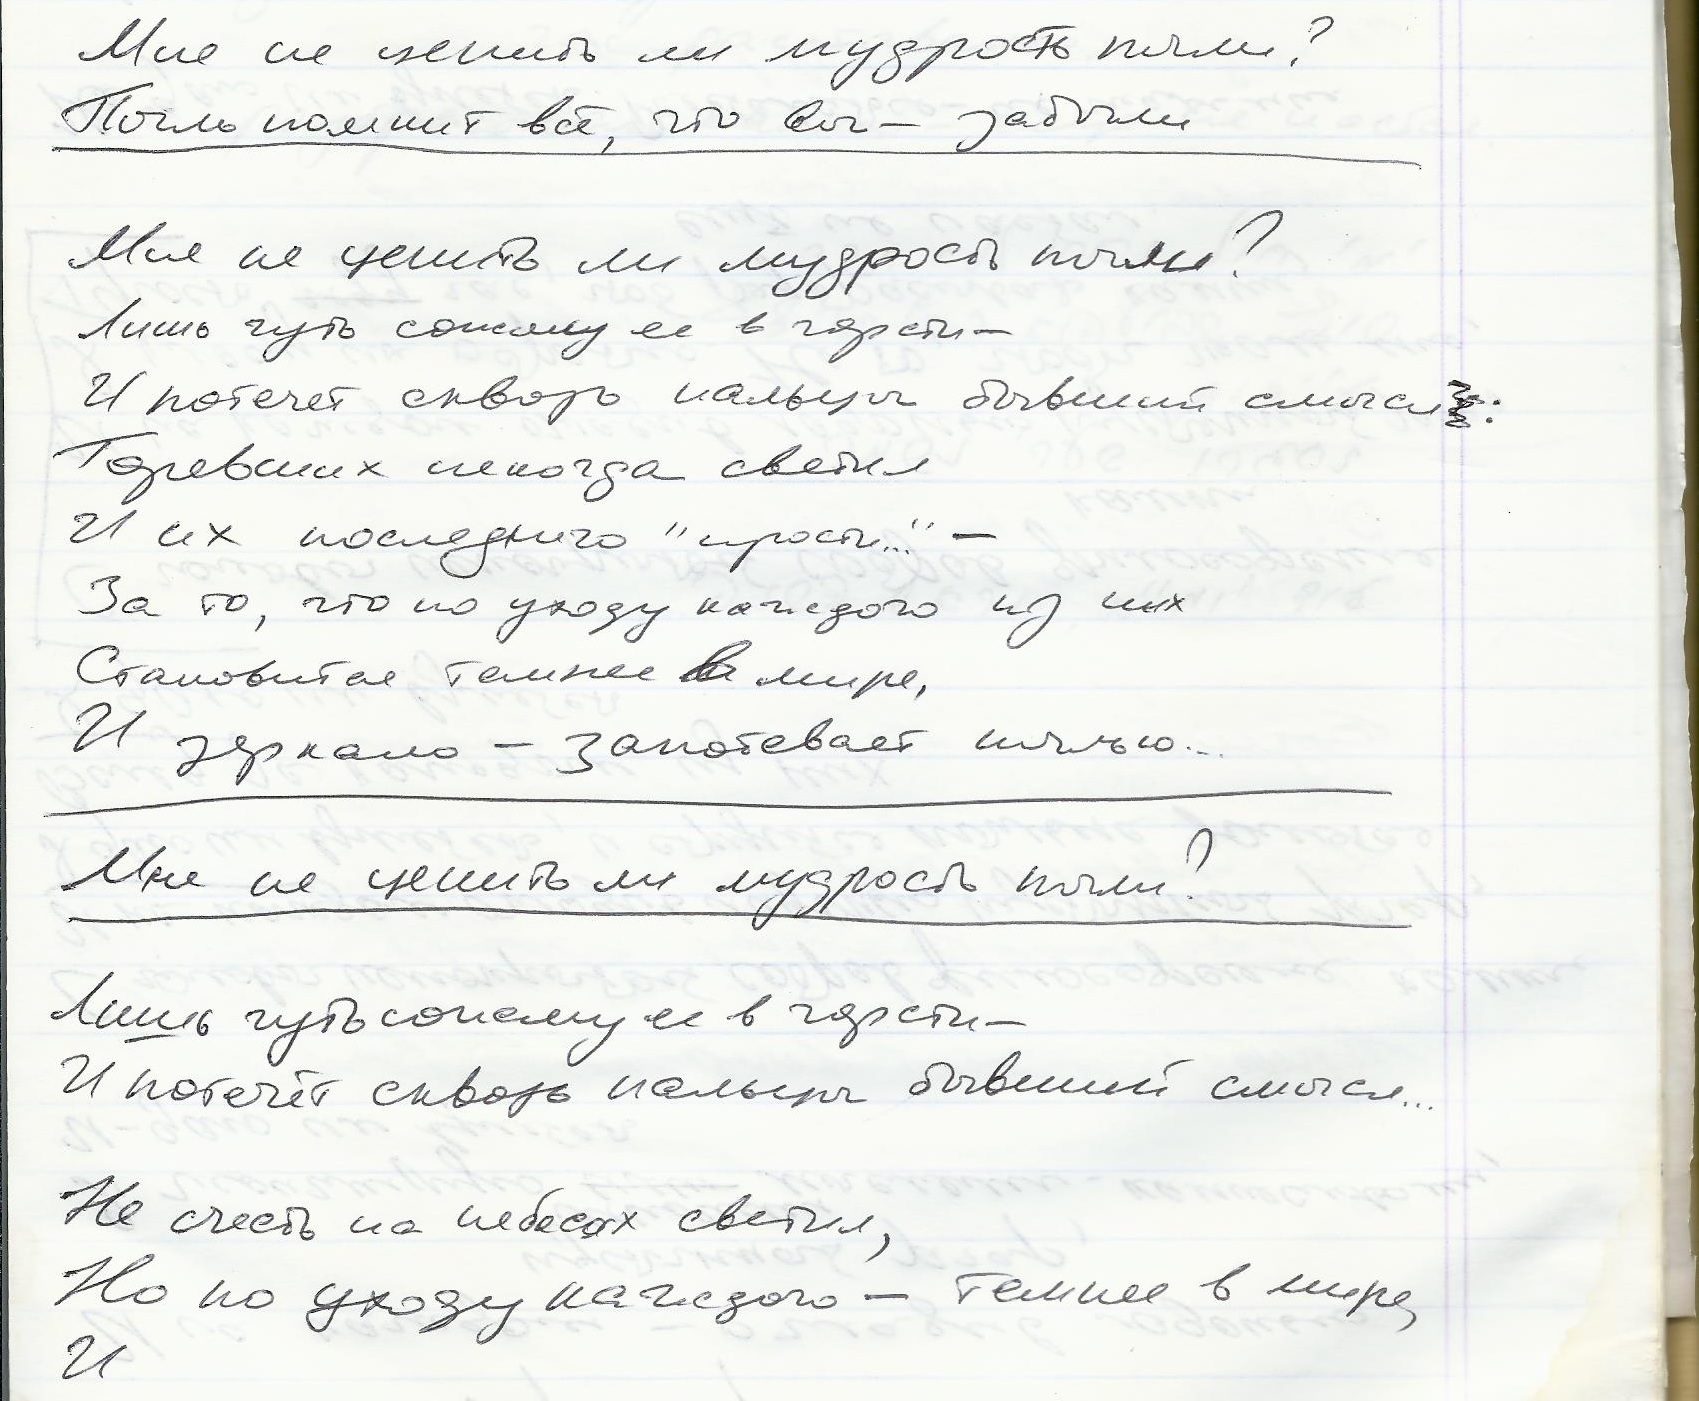 Мне не ценить ли мудрость пыли?
Пыль помнит всё, что вы — забыли
Мне не ценить ли мудрость пыли?
Лишь чуть сожму ее в горсти —
И потечет сквозь пальцы бывший смысл :
Горевших некогда светил
И их последнего "прости..." —
За то, что по уходу каждого из них
Становится темнее в мире,
И зеркало — запотевает пылью...
Мне не ценить ли мудрость пыли?
Лишь чуть сожму ее в горсти —
И потечёт сквозь пальцы бывший смысл...
Не счесть на небесах светил,
Но по уходу каждого — темнее в мире,
И